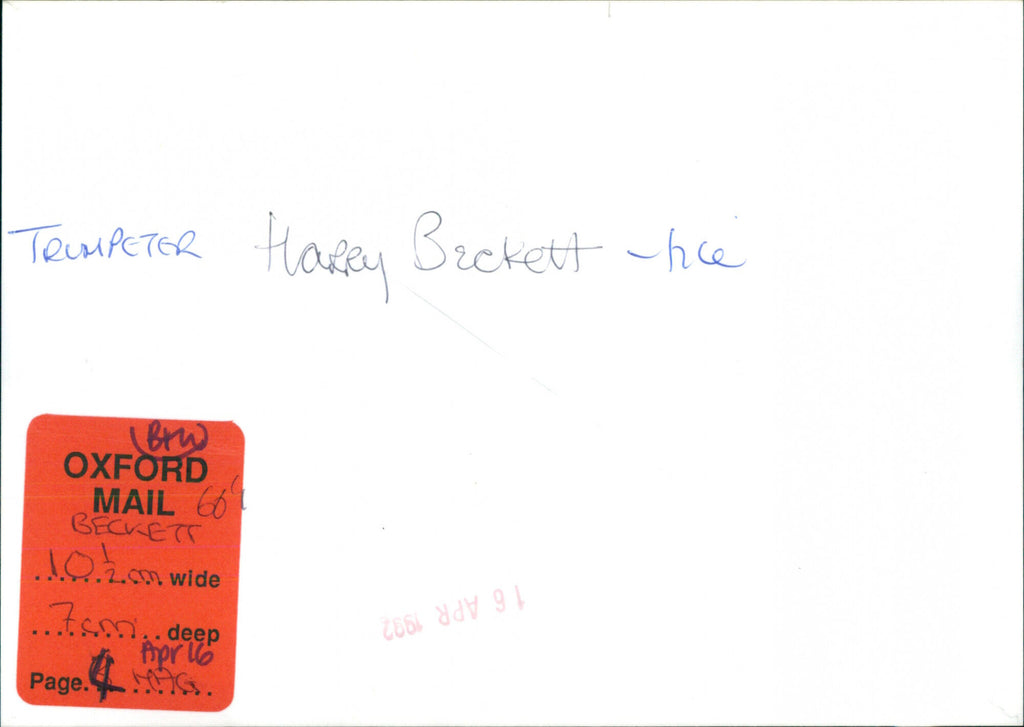 TRUMPETER Harry Beckett -
(B+W)
OXFORD
MAIL 66%
BECKETT
10 1/2 cm wide
7cm deep
Apr 16
Page. MAG
16 APR 1992